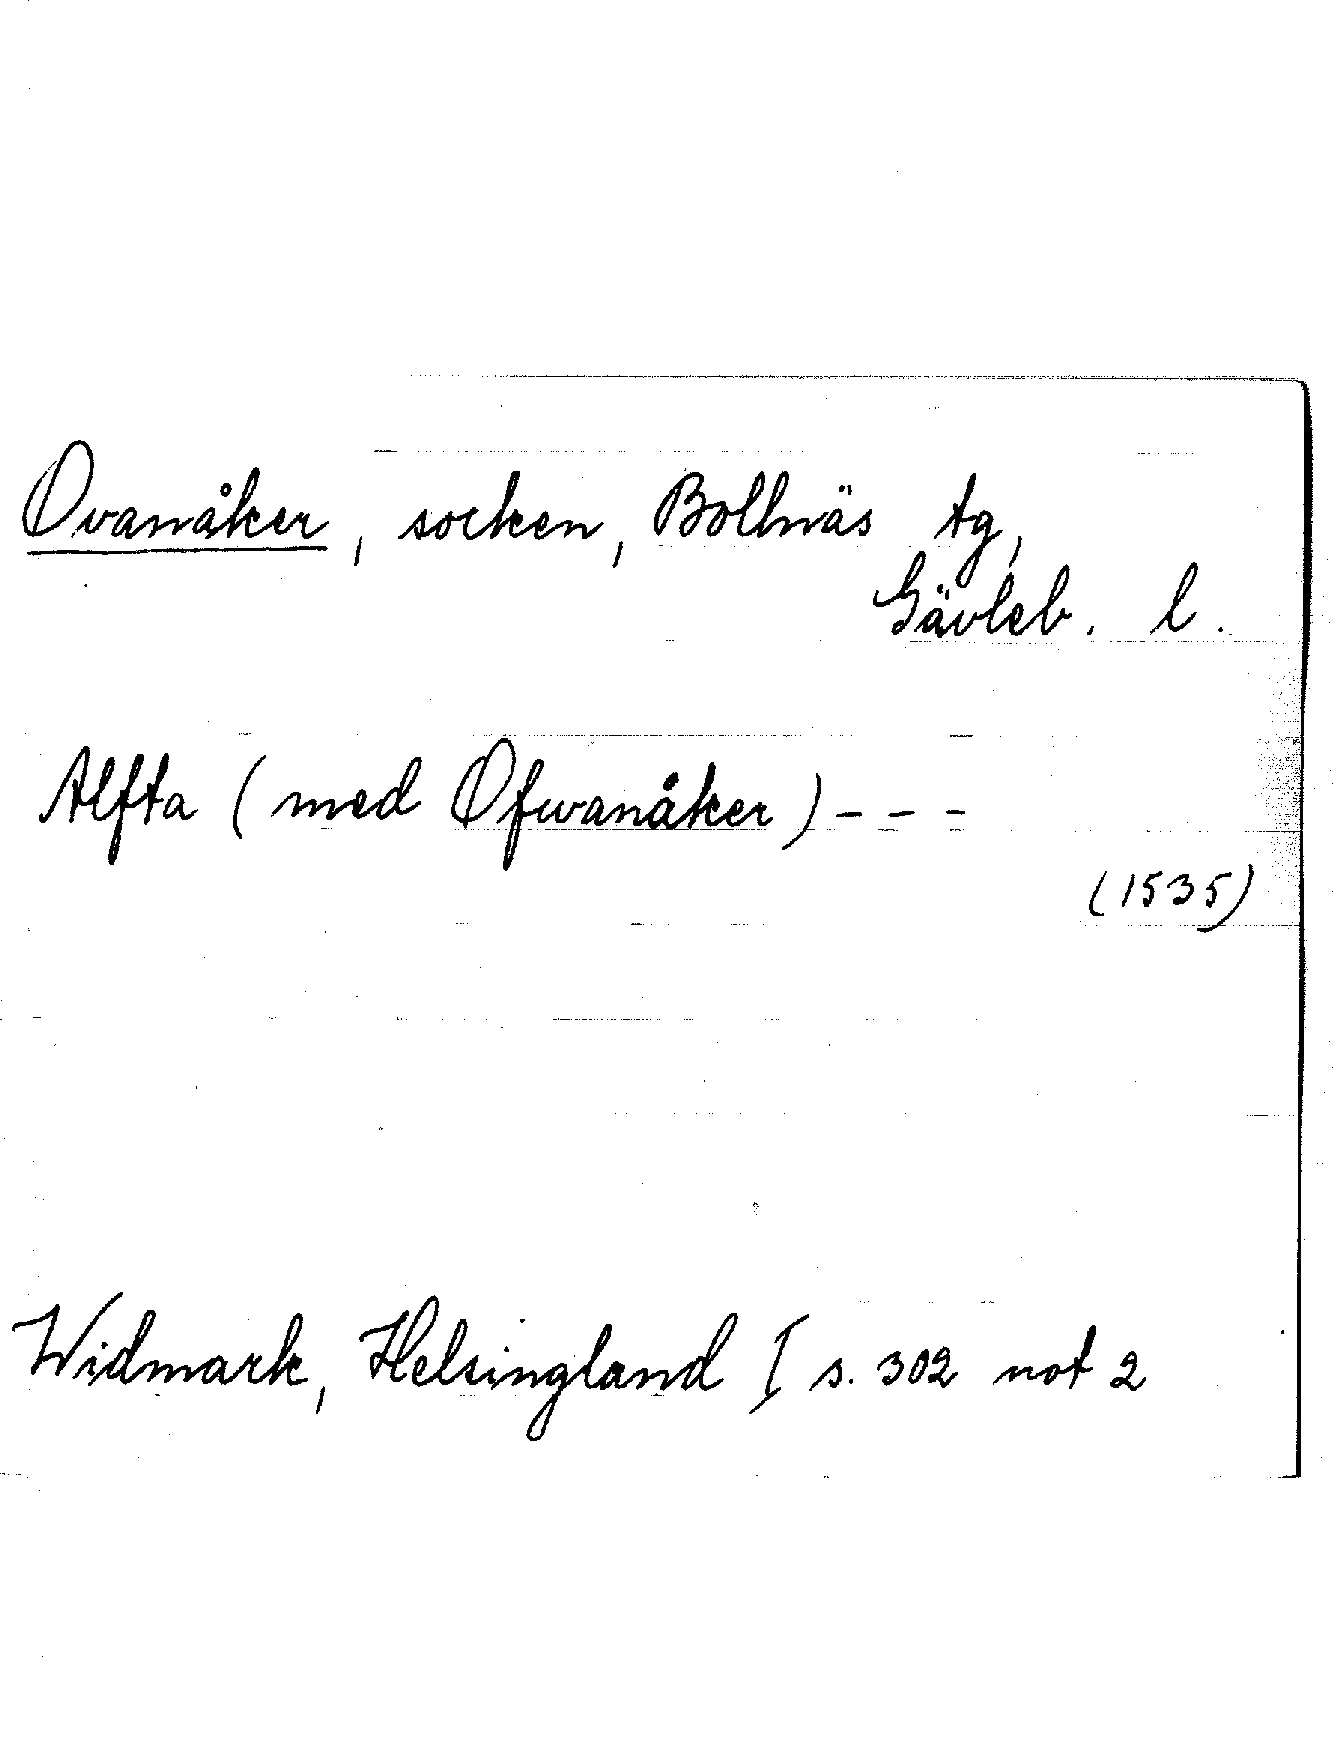 Ovanåker, socken, Bollnäs tg,
Gävleb. l.
Alfta (med Ofwanåker) - - -
(1535)
Widmark, Helsingland I s. 302 not 2